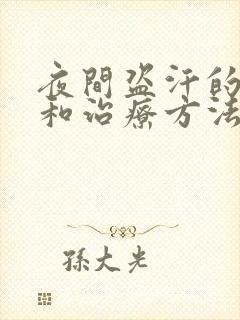 夜間盗汗的
和治療方法
孫大光